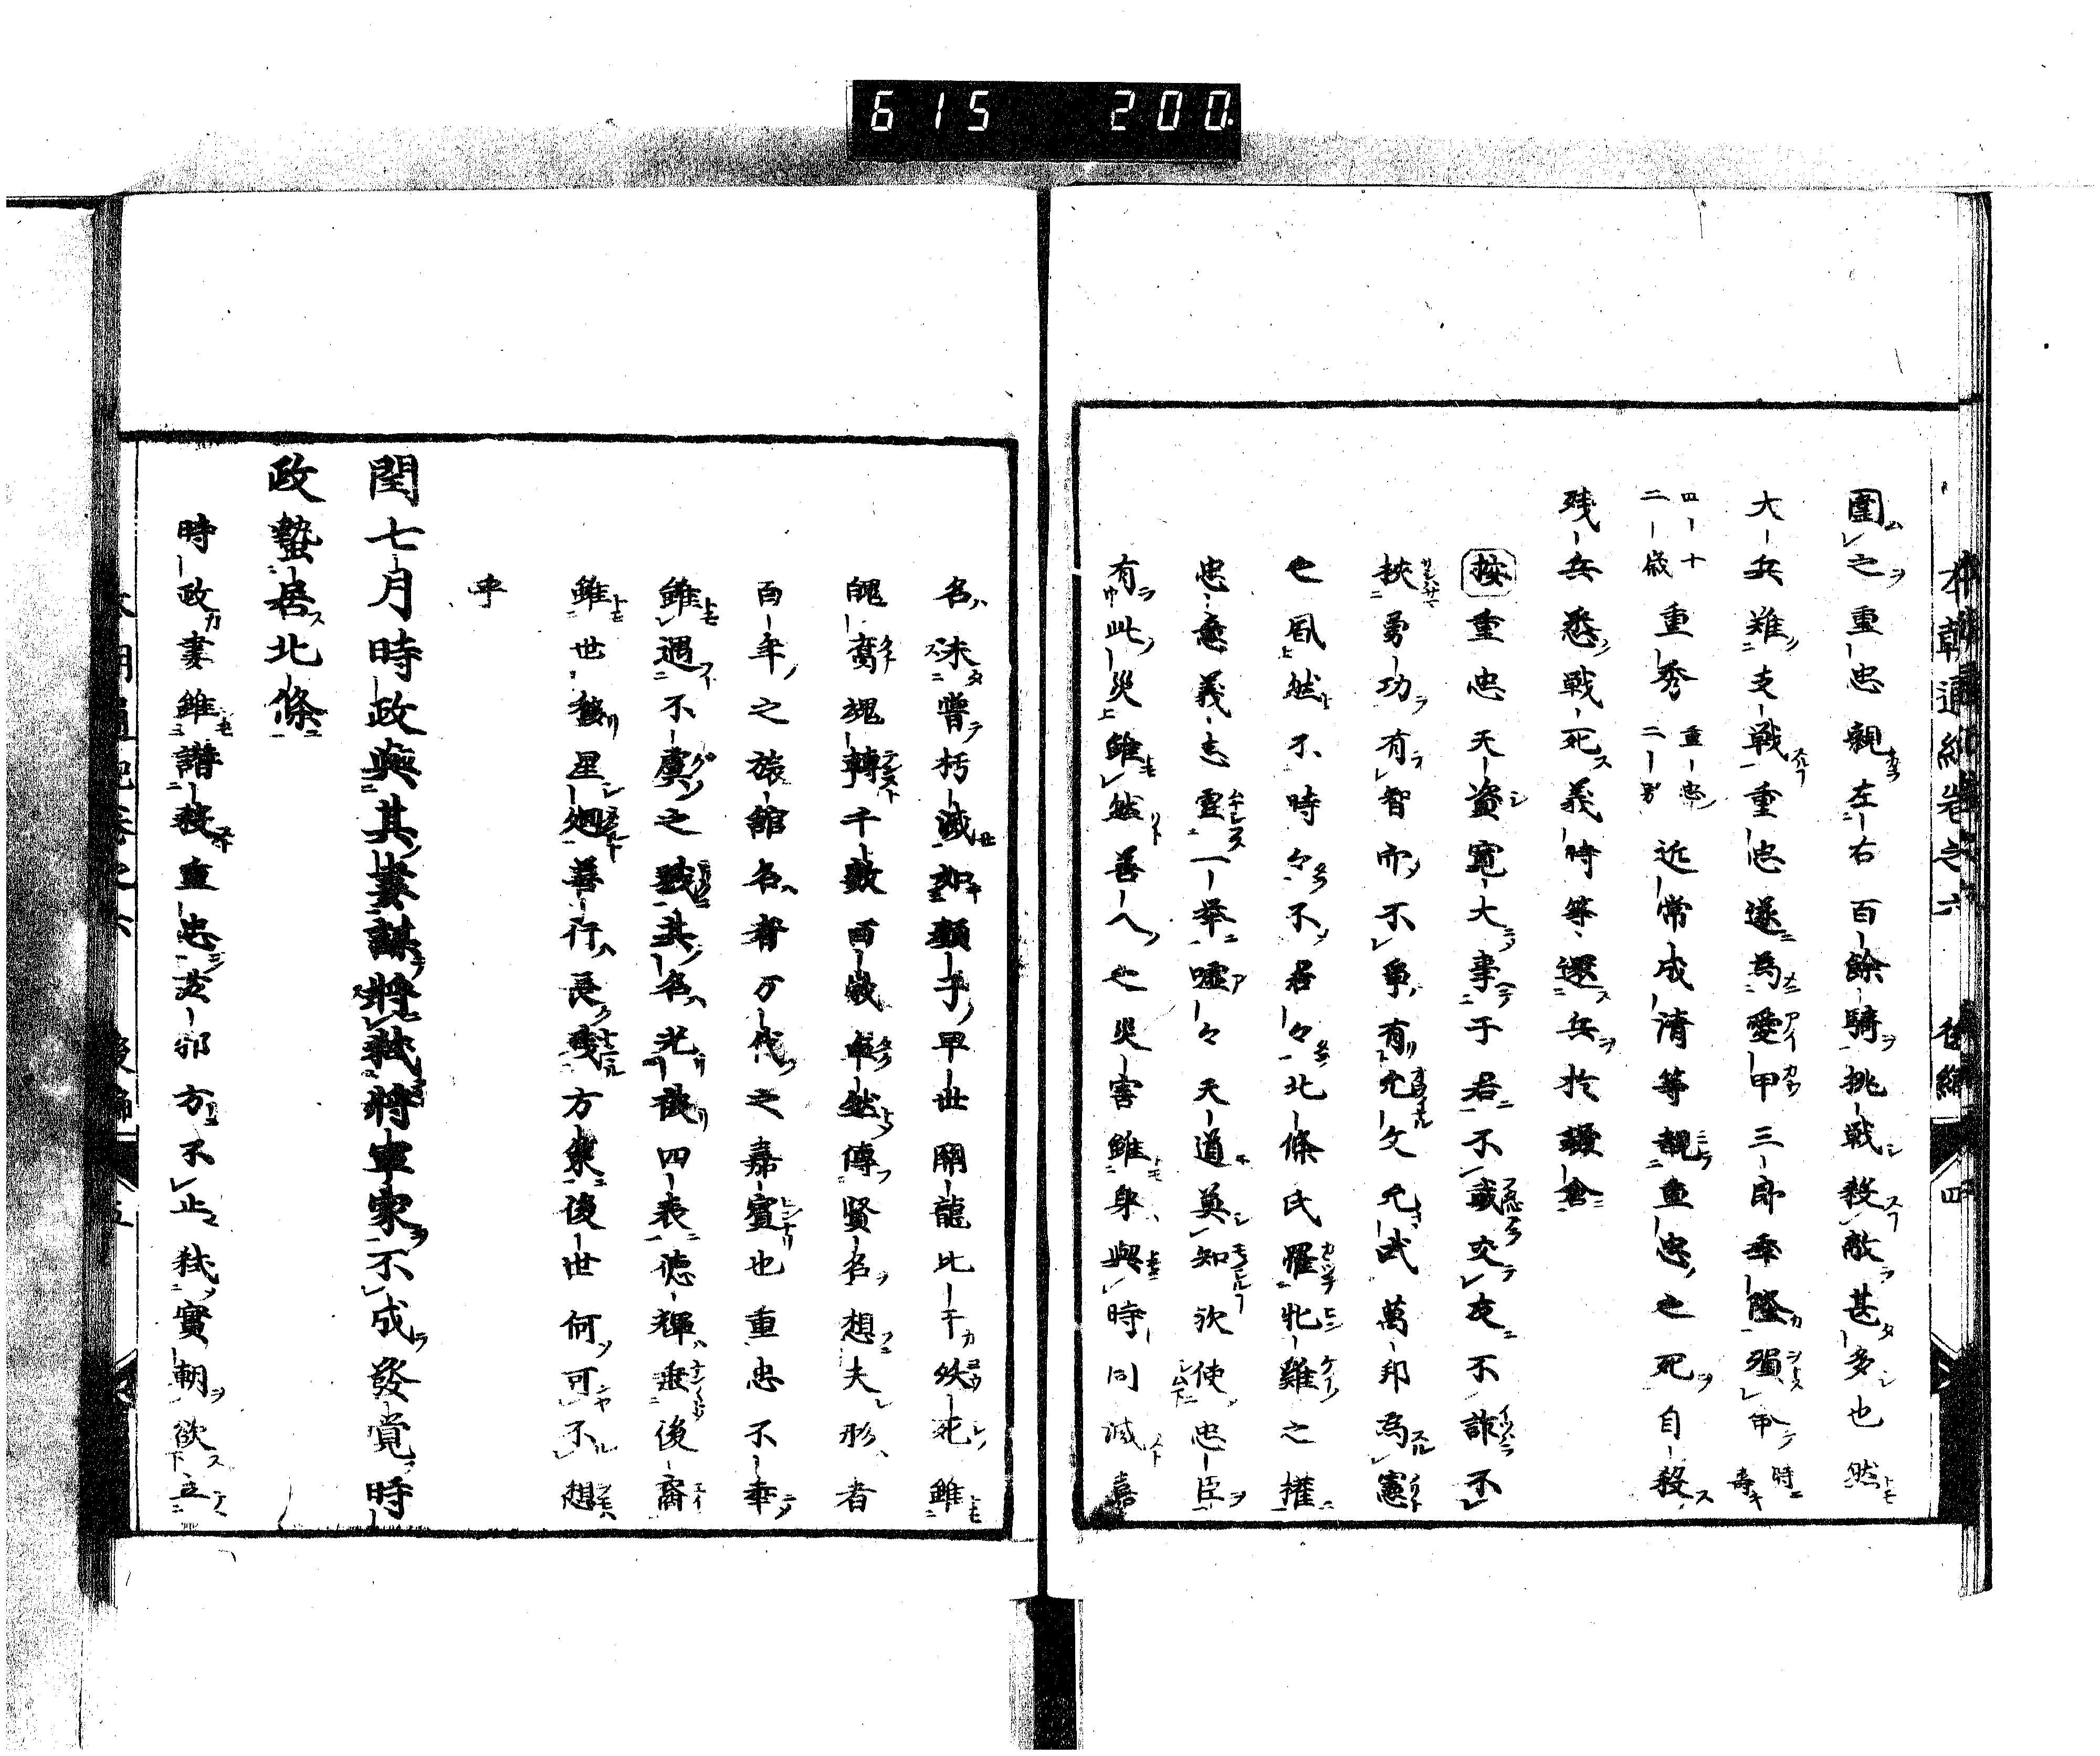 615 200
本朝通紀卷之六 後編 四
圍之重忠親左右百餘騎挑戰殺敵甚多也然
大兵難支戰重忠遂為愛甲三郎季隆殞命時
四十二歲重秀重忠二男近常成清等親重忠之死自殺
殘兵悉戰死義時等還兵於鎌倉
按重忠天資寬大事于君不貳交友不詐不
挾勇功有智而不爭有允文允武萬邦為憲
之風然不時々不君々北條氏罹牝雞之權
忠意義志靈一舉噓々天道莫知欤使忠臣
有此災雖然善人之災害雖身與時同滅嘉
名未嘗朽滅如類乎早世關龍比干欤死雖
魄裔魂轉千數百歲卓然傳賢名想夫形者
百年之旅館名者万代之嘉賓也重忠不幸
雖遇不虞之戮其名光被四表德輝垂後裔
雖世移星廻善行長殘方策後世何可不想
乎
閏七月時政與其妻謀將弒將軍實朝不成發覺時
政蟄居北條
時政妻雖譖殺重忠其邪方不止弒實朝欲立